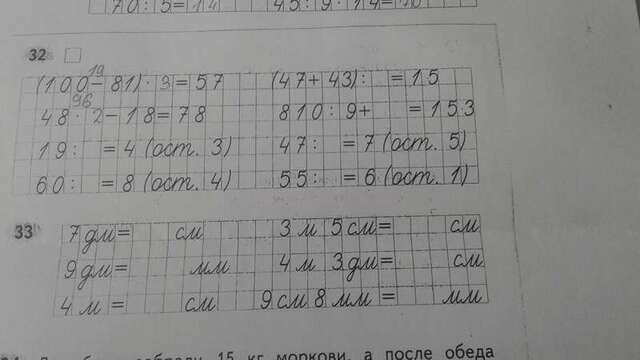 70:5=14 45:9·14=70
32
19
(100-81)·3=57 (47+43): =15
96
48·2-18=78 810:9+ =153
19: =4 (ост. 3) 47: =7 (ост. 5)
60: =8 (ост. 4) 55: =6 (ост. 1)
33
7 дм= см 3 м 5 см= см
9 дм= мм 4 м 3 дм= см
4 м = см 9 см 8 мм = мм
15 кг моркови, а после обеда